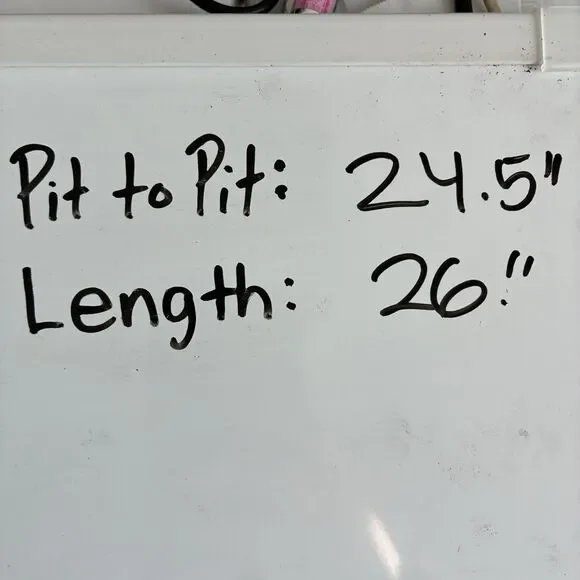 Pit to Pit: 24.5"
Length: 26."